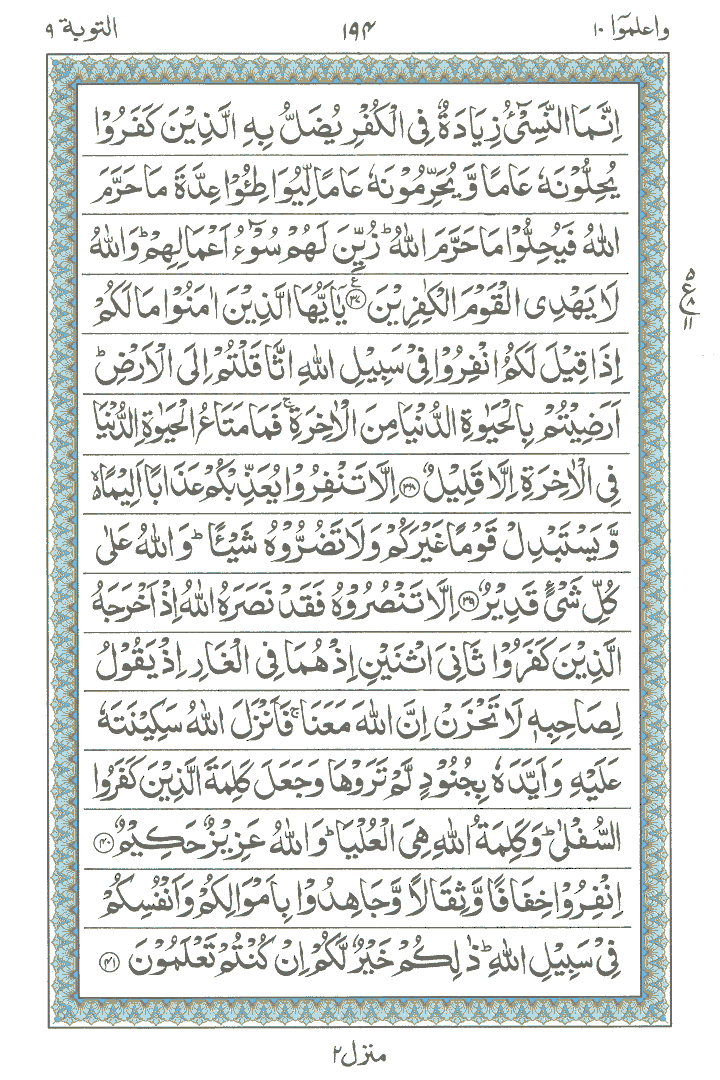 واعلموٓا ١٠ ١٩٤ التوبة ٩
اِنَّمَا النَّسِیْٓءُ زِیَادَةٌ فِی الْكُفْرِ یُضَلُّ بِهِ الَّذِیْنَ كَفَرُوْا
یُحِلُّوْنَهٗ عَامًا وَّ یُحَرِّمُوْنَهٗ عَامًا لِّیُوَاطِـُٔوْا عِدَّةَ مَا حَرَّمَ
اللّٰهُ فَیُحِلُّوْا مَا حَرَّمَ اللّٰهُ ؕ زُیِّنَ لَهُمْ سُوْٓءُ اَعْمَالِهِمْ ؕ وَاللّٰهُ
لَا یَهْدِی الْقَوْمَ الْكٰفِرِیْنَ ﴿۳۷﴾ ع یٰۤاَیُّهَا الَّذِیْنَ اٰمَنُوْا مَا لَكُمْ
٥ ع ٨ ١١
اِذَا قِیْلَ لَكُمُ انْفِرُوْا فِیْ سَبِیْلِ اللّٰهِ اثَّاقَلْتُمْ اِلَی الْاَرْضِ ؕ
اَرَضِیْتُمْ بِالْحَیٰوةِ الدُّنْیَا مِنَ الْاٰخِرَةِ ۚ فَمَا مَتَاعُ الْحَیٰوةِ الدُّنْیَا
فِی الْاٰخِرَةِ اِلَّا قَلِیْلٌ ﴿۳۸﴾ اِلَّا تَنْفِرُوْا یُعَذِّبْكُمْ عَذَابًا اَلِیْمًا ۙ
وَّ یَسْتَبْدِلْ قَوْمًا غَیْرَكُمْ وَلَا تَضُرُّوْهُ شَیْـًٔا ؕ وَاللّٰهُ عَلٰی
كُلِّ شَیْءٍ قَدِیْرٌ ﴿۳۹﴾ اِلَّا تَنْصُرُوْهُ فَقَدْ نَصَرَهُ اللّٰهُ اِذْ اَخْرَجَهُ
الَّذِیْنَ كَفَرُوْا ثَانِیَ اثْنَیْنِ اِذْ هُمَا فِی الْغَارِ اِذْ یَقُوْلُ
لِصَاحِبِهٖ لَا تَحْزَنْ اِنَّ اللّٰهَ مَعَنَا ۚ فَاَنْزَلَ اللّٰهُ سَكِیْنَتَهٗ
عَلَیْهِ وَاَیَّدَهٗ بِجُنُوْدٍ لَّمْ تَرَوْهَا وَجَعَلَ كَلِمَةَ الَّذِیْنَ كَفَرُوا
السُّفْلٰی ؕ وَكَلِمَةُ اللّٰهِ هِیَ الْعُلْیَا ؕ وَاللّٰهُ عَزِیْزٌ حَكِیْمٌ ﴿۴۰﴾
اِنْفِرُوْا خِفَافًا وَّثِقَالًا وَّجَاهِدُوْا بِاَمْوَالِكُمْ وَاَنْفُسِكُمْ
فِیْ سَبِیْلِ اللّٰهِ ؕ ذٰلِكُمْ خَیْرٌ لَّكُمْ اِنْ كُنْتُمْ تَعْلَمُوْنَ ﴿۴۱﴾
منزل ٢